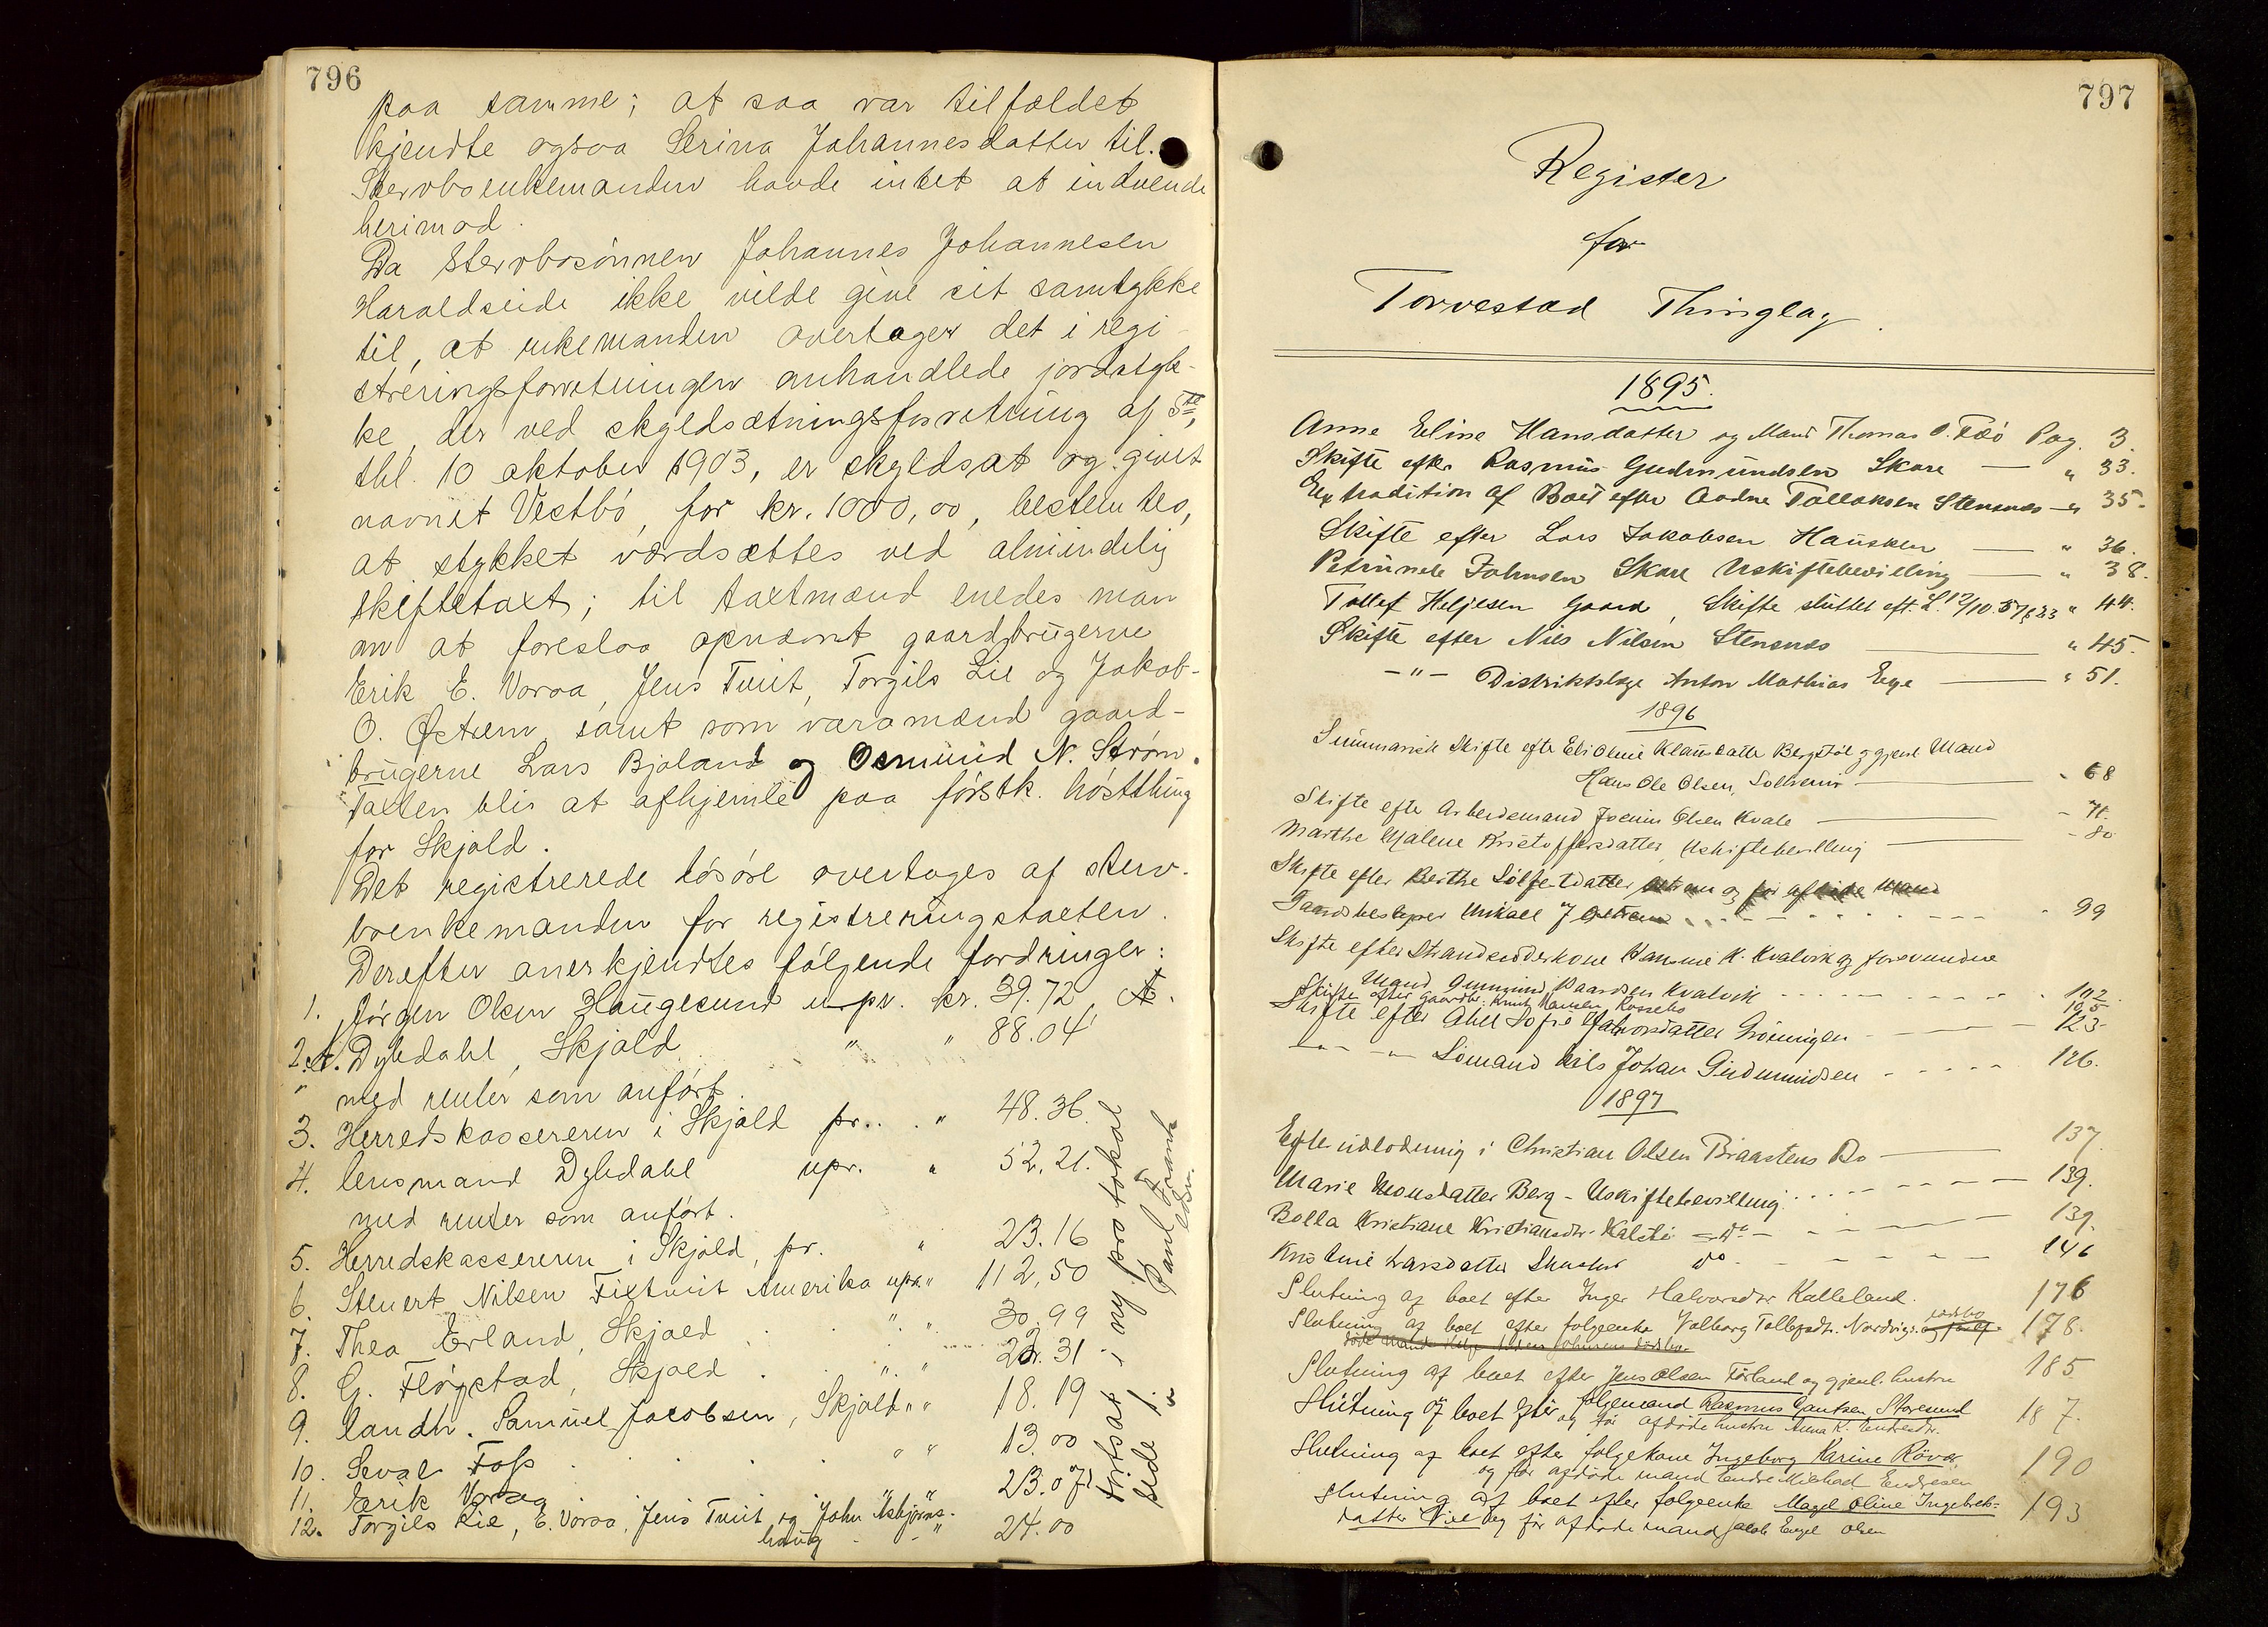 796
paa samme; at saa var tilfældet
kjendte ogsaa Serina Johannesdatter til.
Stervboenkemanden havde intet at indvende
herimod.
Da stervbosønnen Johannes Johannesen
Haraldseide ikke vilde give sit samtykke
til, at enkemanden overtager det i regi-
streringsforretningen omhandlede jordstyk-
ke, der ved skyldsætningsforretning af 5te,
thl. 10 oktober 1903, er skyldsat og givet
navnet Vestbö, for kr. 1000,00, bestemtes,
at stykket værdsættes ved almindelig
skiftetaxt; til taxtmænd enedes man
om at foreslaa opnævnt gaardbrugerne
Erik E. Voraa, Jens Tveit, Torgils Lie og Jakob
O. Östrem samt som varamænd gaard-
brugerne Lars Bjoland og Osmund N. Ström.
Taxten blir at afhjemle paa förstk. høstthing
for Skjold.
Det registrerede løsøre overtages af sterv-
boenkemanden for registreringstaxten.
Derefter anerkjendtes følgende fordringer:
1. Jørgen Olsen Haugesund upr. kr. 39.72
2. A. Dybdahl, Skjold " " 88.04
" med renter som anført.
3. Herredskassereren i Skjold pr. . . " 48.36.
4. lensmand Dybdahl upr. " 52,21.
med renter som anført.
5. Herredskassereren i Skjold, pr. " 23.16
6. Stenert Nilsen Fixtveit Amerika upr. " 112,50
7. Thea Erland, Skjold " " 30.99
8. G. Fløgstad, Skjold " " 22.31
9. landh. Samuel Jacobsen, Skjold " " 18.19
10. Seval Foss " " 13.00
11. Erik Voraa " " 23.07
12. Torgils Lie, E. Voraa, Jens Tveit og John Asbjørns-
haug - " 24.00
fortsat i ny protokol
side 1.
797
Register
for
Torvestad Thinglag.
1895.
Anne Eline Hansdatter og Mand Thomas O. Feö Pag. 3.
Skifte efter Rasmus Gudmundsen Skare — " 33.
Extradition af Boet efter Aadne Tollaksen Stensnes — " 35.
Skifte efter Lars Jakobsen Hausken — " 36.
Petrine Johnsen Skare Uskiftebevilling — " 38.
Tollef Heljesen Gaard, Skifte sluttet eft. L. 12/10. 57 § 23 " 44.
Skifte efter Nils Nilsen Stensnes — " 45.
— " — Distriktslæge Anton Mathias Ege — " 51.
1896
Summarisk Skifte efter Eli Oline Klausdatter Bergstöl og gjenl. Mand
Hans Ole Olsen, Solheim — " 68
Skifte efter Arbeidsmand Joenius Olsen Kvale — - 71.
Marthe Malene Kristoffersdatter, Uskiftebevilling — - 80
Skifte efter Berthe Sölfestdatter
Gaardbesbruger Mikael J Östrem - - - - 99
Skifte efter Strandsidderkone Hansine K. Kvalvik og forsvundne
Mand Gunnuud Paardsen Kvalvik - - - - 102
Skifte efter Gaardbr. Knut Hansen Rossebö 105
Skifte efter Abel Sofie Halvorsdatter Grönningen - - - 123
— " — " — Sömand Nils Johan Gudmundsen - - - 126.
1897
Efterudlodning i Christian Olsen Braastens Bo — 137.
Marie Monsdatter Berg - Uskiftebevilling - - - 139.
Bolla Kristiane Kristiansdtr. Kalstö — do — 139.
Kristine Larsdatter Skustor do - - - 146
Slutning af boet efter Inger Halvorsdtr Kalleland. 176
Slutning af boet efter folgeenke Valborg Tollefsdtr. Nordvigs dödsbo 178.
Slutning af boet efter Jens Olsen Förland og gjenl. hustru 185
Slutning af boet efter folgemand Rasmus Gautsen Storesund 187.
og för afdöde hustru Anna K. Endresdtr.
Slutning af boet efter folgekone Ingeborg Karine Rövær 190
og för afdöde mand Endre Mikkal Endresen
Slutning af boet efter folgeenke Magel Oline Ingebrets- 193
datter Vie og för afdöde mand Jacob Engel Olsen